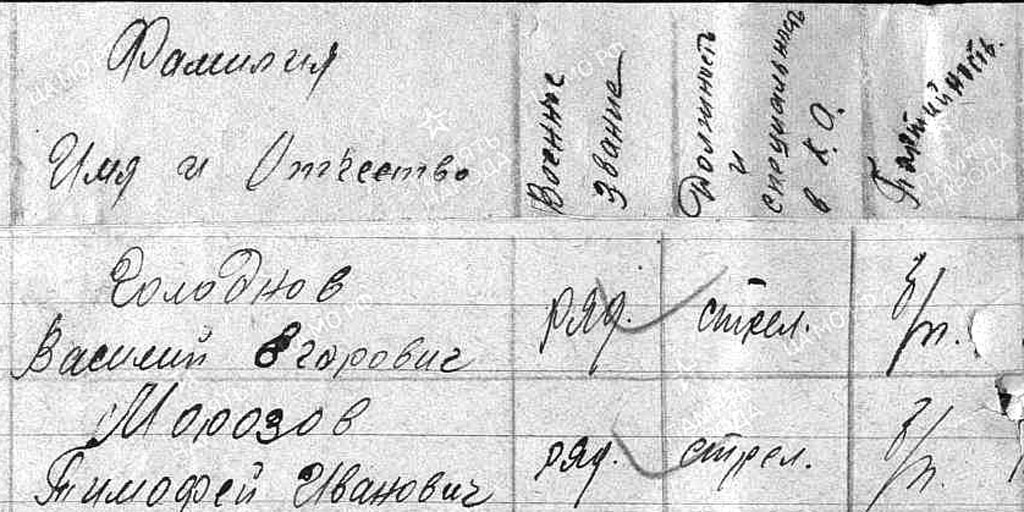 Фамилия
Имя и Отчество
Военное
звание
Должность
и
специальность
в К.О.
Партийность
Голоднов
Василий Егорович
ряд.
стрел.
б/п.
Морозов
Тимофей Иванович
ряд.
стрел.
б/п.